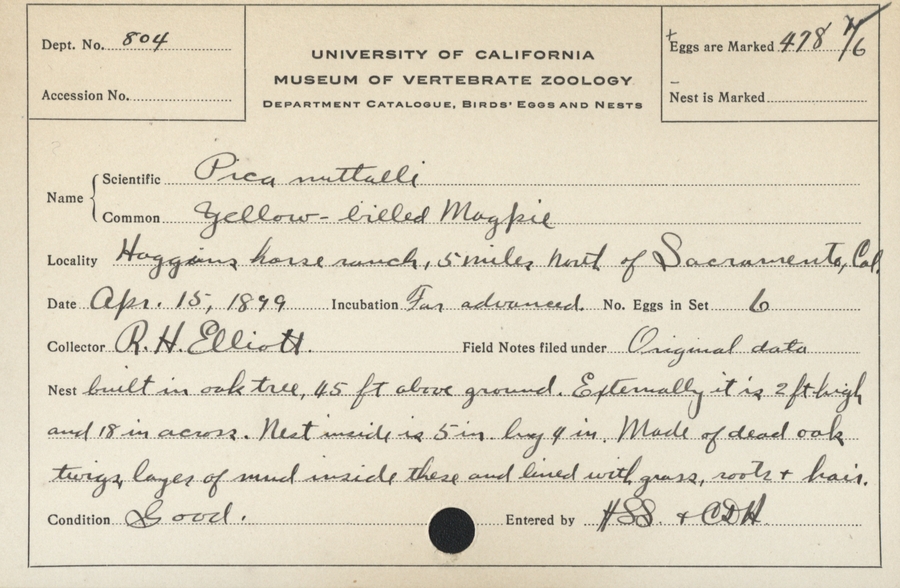 Dept. No. 804
Accession No.
UNIVERSITY OF CALIFORNIA
MUSEUM OF VERTEBRATE ZOOLOGY
DEPARTMENT CATALOGUE, BIRDS' EGGS AND NESTS
Eggs are Marked 478 4/6
Nest is Marked
Name
Scientific Pica nuttalli
Common Yellow-billed Magpie
Locality Haggins horse ranch, 5 miles North of Sacramento, Cal.
Date Apr. 15, 1899 Incubation Far advanced. No. Eggs in Set 6
Collector R. H. Elliott. Field Notes filed under Original data
Nest built in oak tree, 45 ft above ground. Externally it is 2 ft high
and 18 in across. Nest inside is 5 in. by 9 in. Made of dead oak
twigs, layer of mud inside these and lined with grass, roots + hair.
Condition Good. Entered by HSS. + CDH